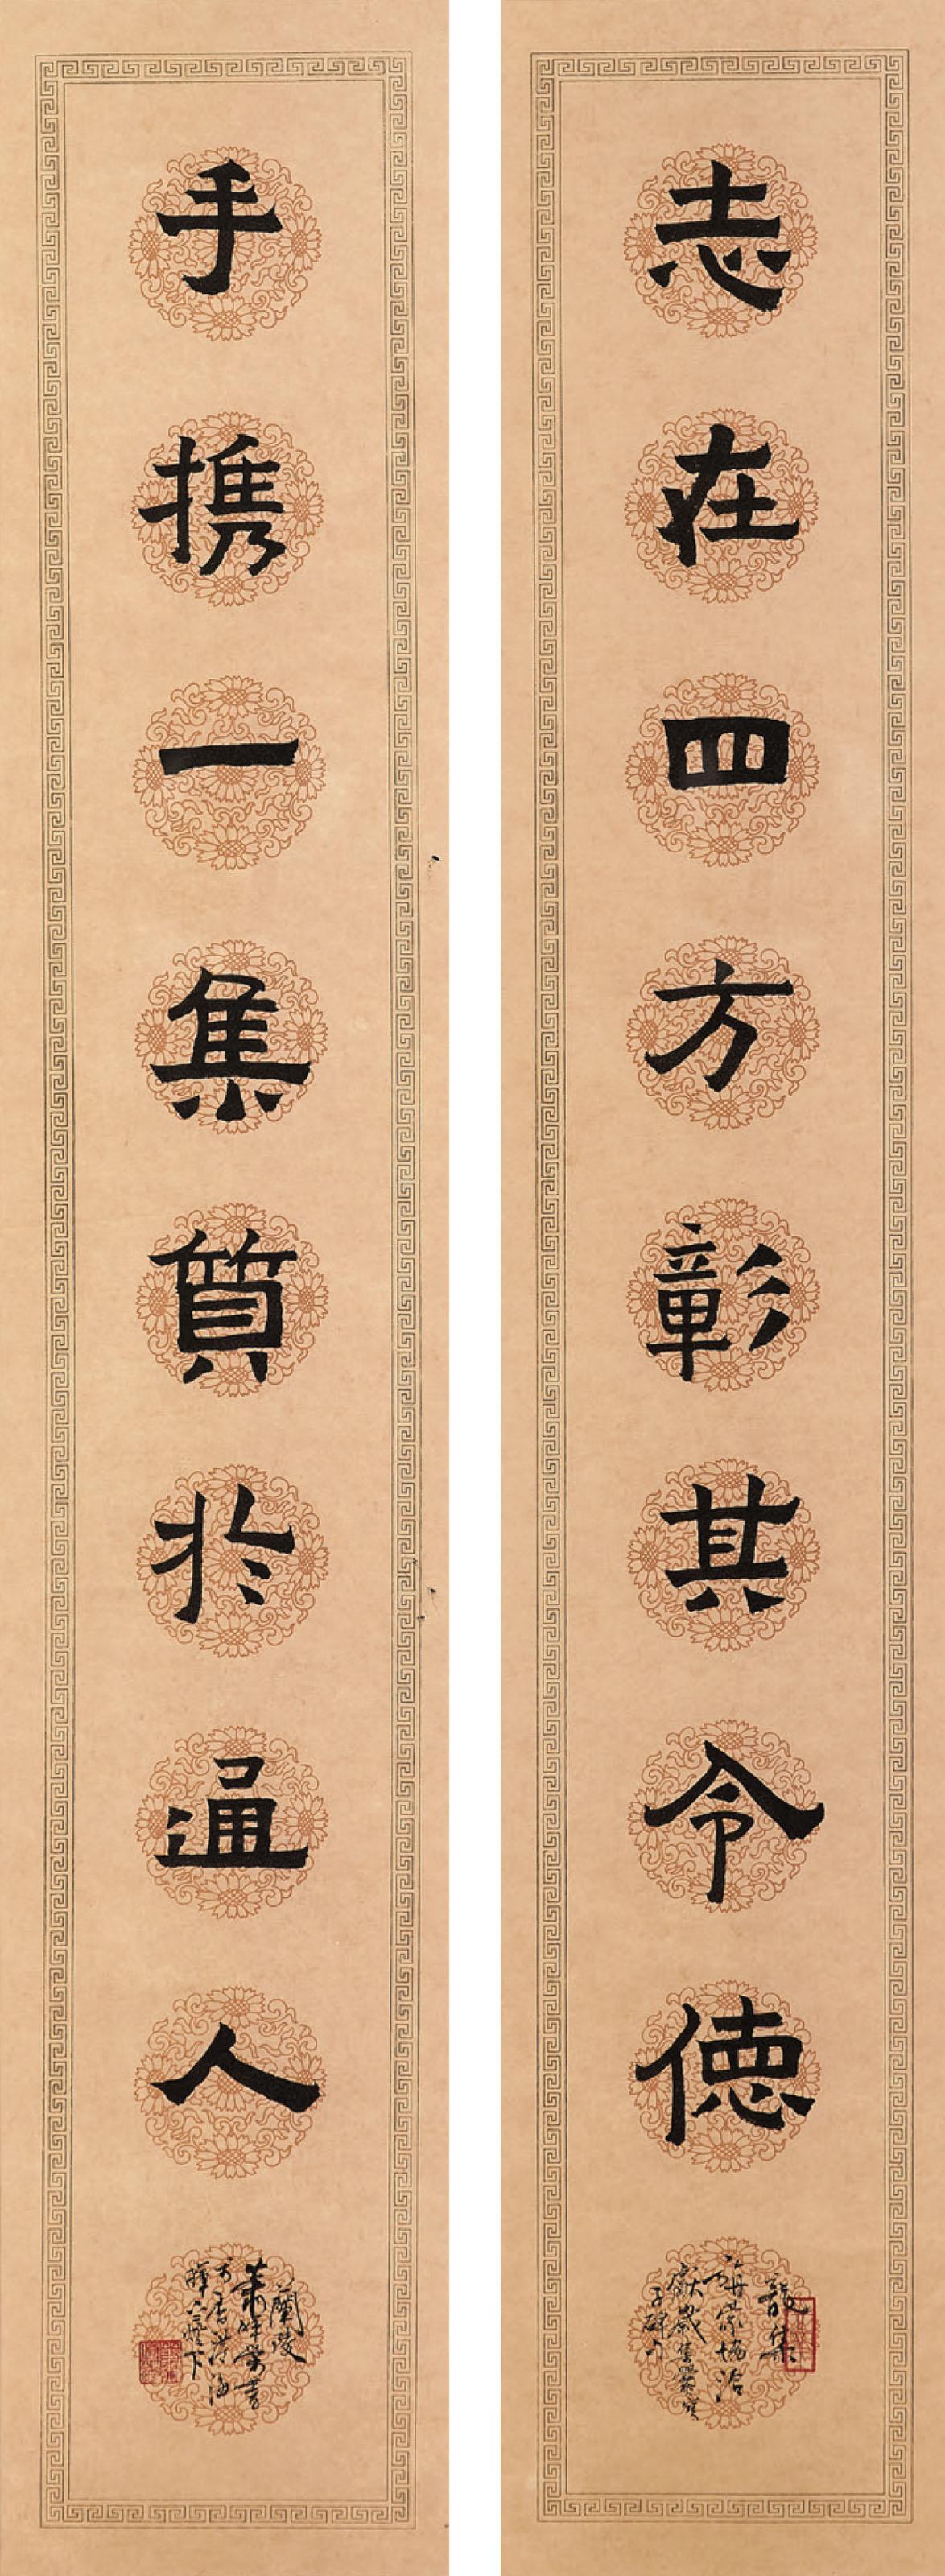 志在四方彰其令德
手携一集質於通人
蘭陵